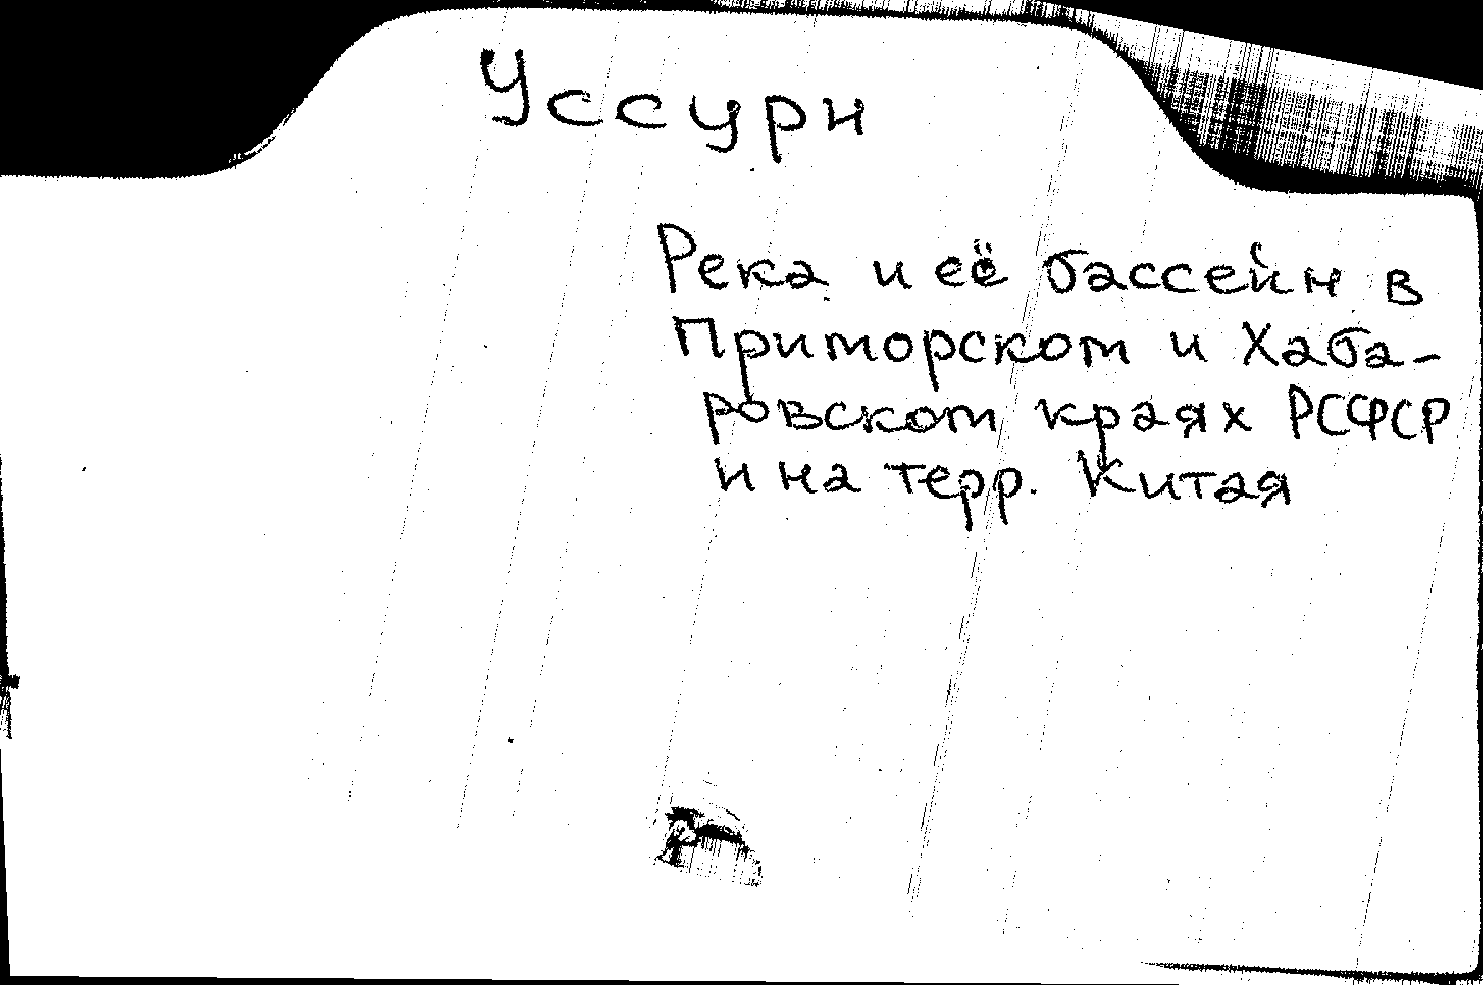 Уссури
Река и её бассейн в
Приморском и Хаба-
ровском краях РСФСР
и на терр. Китая